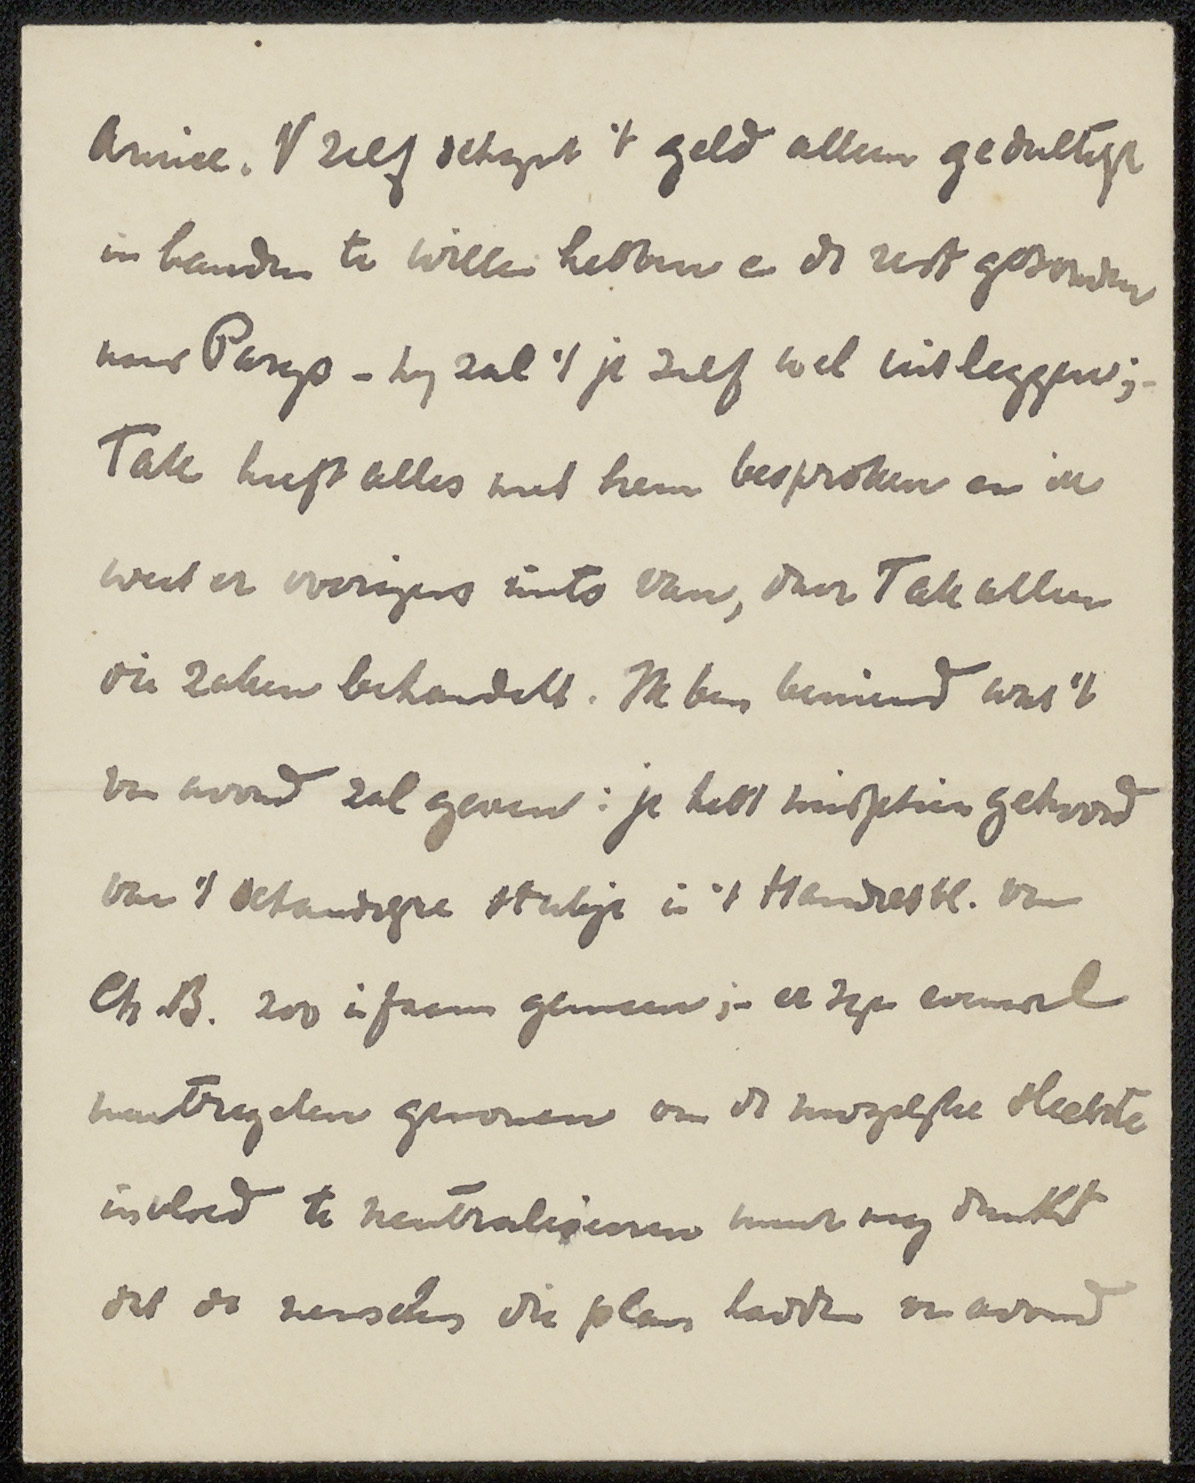 Amice. V zelf schynt 't geld alleen gedeeltelyk
in handen te willen hebben en de rest gezonden
naar Parys - hy zal 't je zelf wel uitleggen; -
Tak heeft alles met hem besproken en ik
weet er overigens niets van, daar Tak alleen
die zaken behandelt. Ik ben benieuwd wat 't
van avond zal geven: je hebt misschien gehoord
van 't schandelyke stukje in 't Handelsbl. van
Ch. B. zoo infaam gemeen; - er zyn evenwel
maatregelen genomen om de mogelyke slechte
invloed te neutraliseeren maar my dunkt
dat de menschen die plan hadden van avond